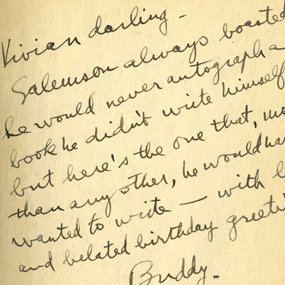 Vivian darling -
Salemson always boasted
he would never autograph a
book he didn't write himself
but here's the one that, mo
than any other, he would hav
wanted to write — with l
and belated birthday greeti
Buddy.